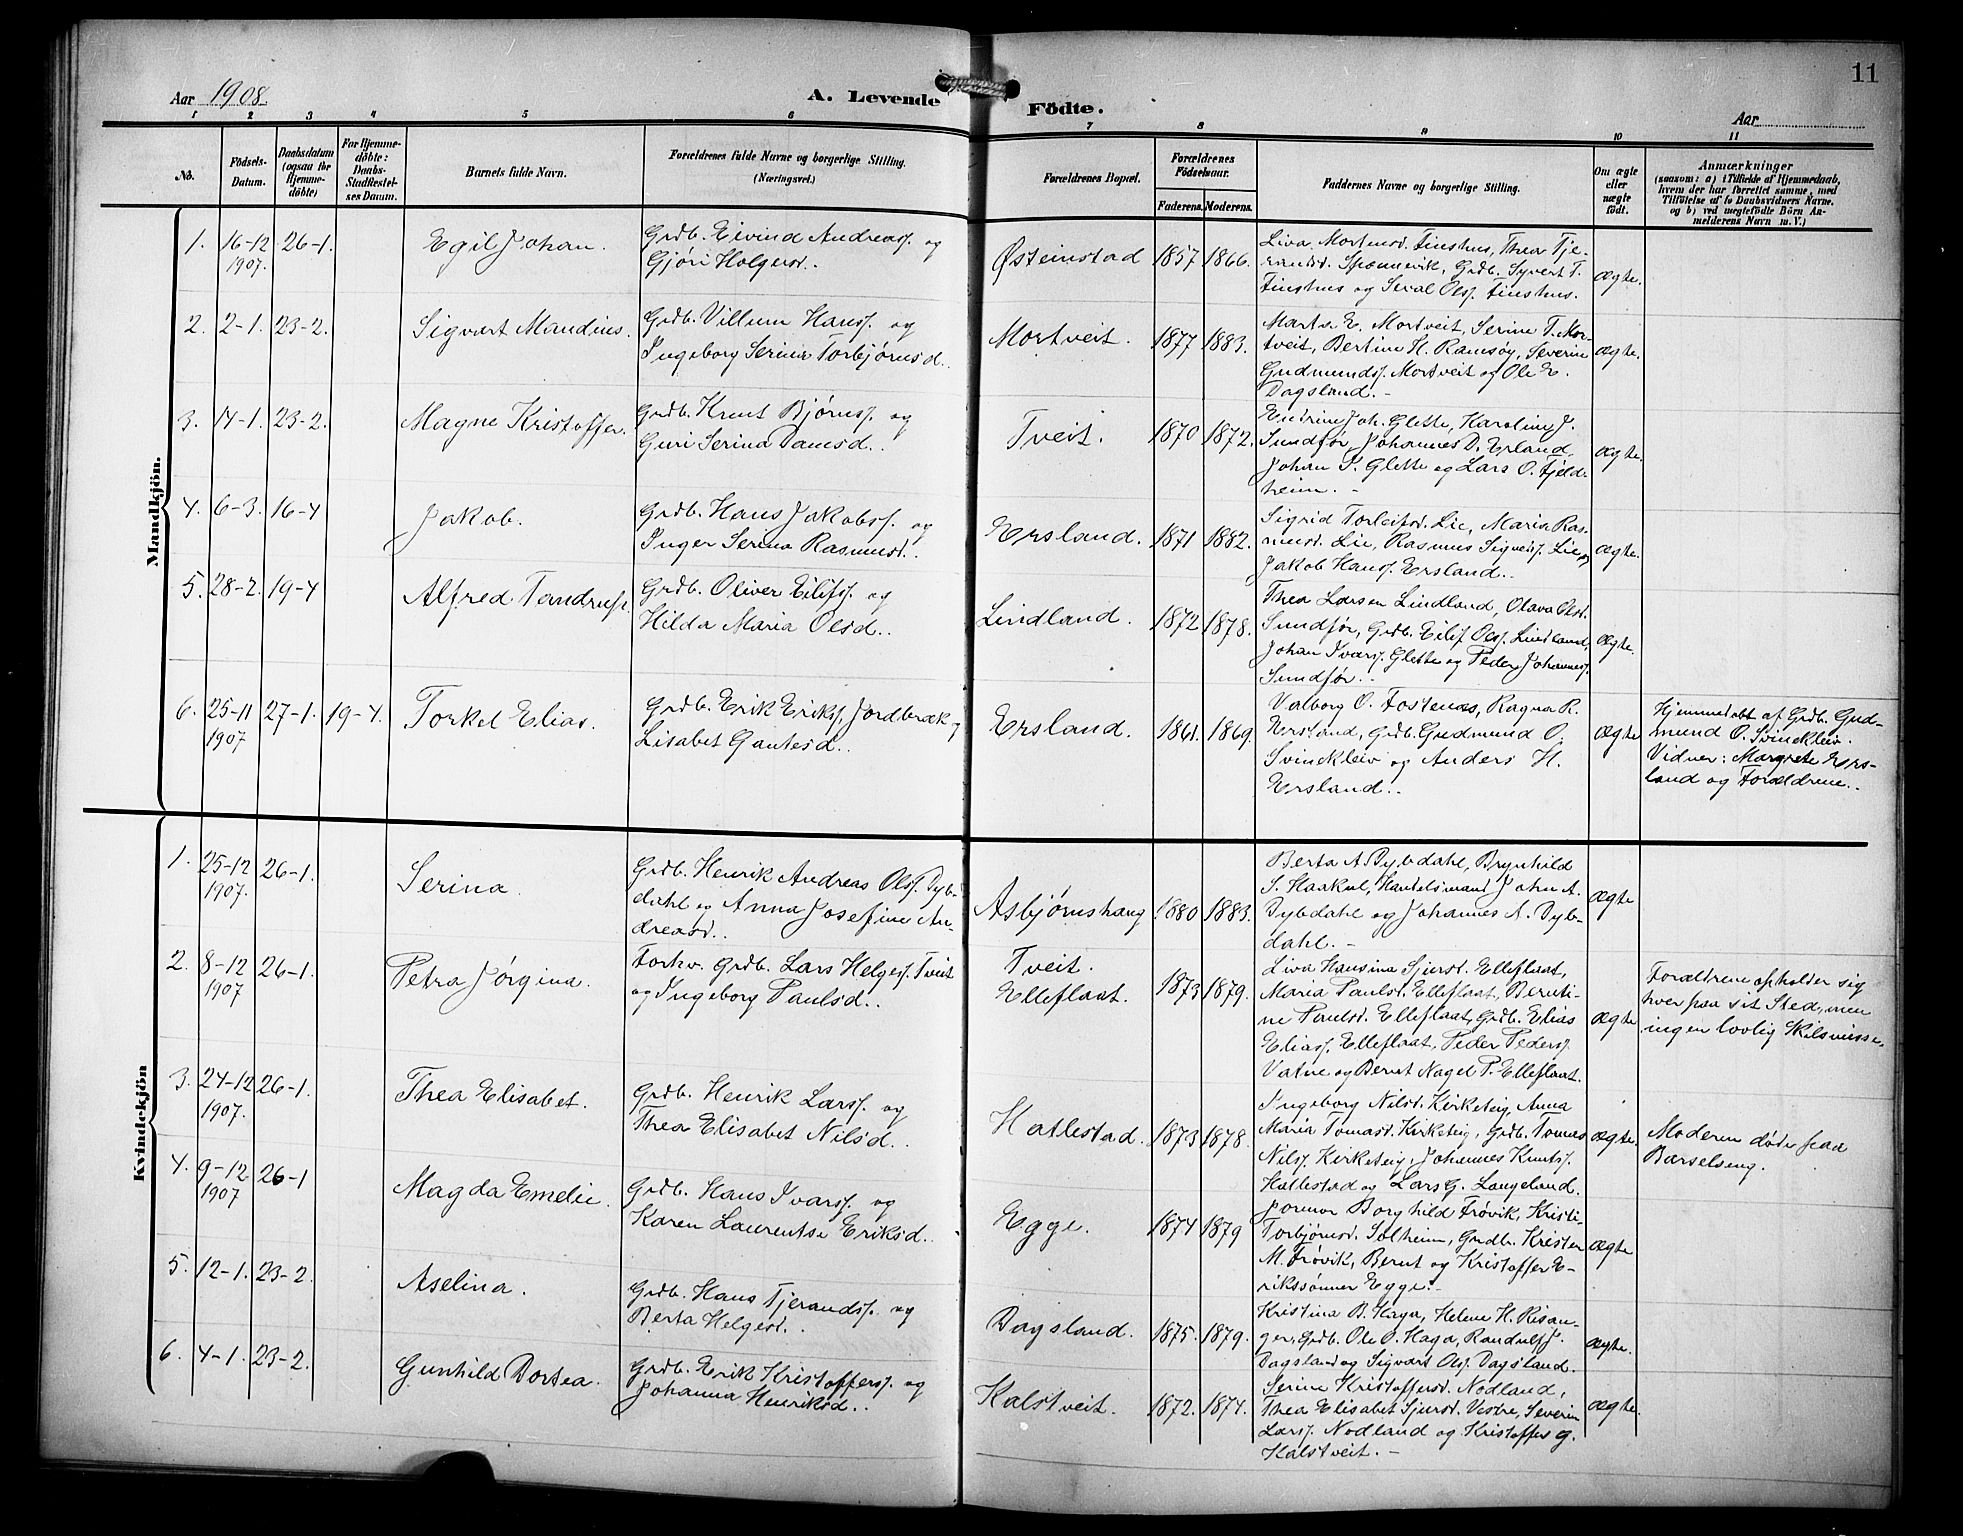 11
Aar 1908.
A. Levende Födte.
Aar
1 2 3 4 5 6 7 8 9 10 11
No.
Födsels-Datum.
Daabsdatum (ogsaa for Hjemme-döbte)
For Hjemme-döbte: Daabs-Stadfæstelses Datum.
Barnets fulde Navn.
Forældrenes fulde Navne og borgerlige Stilling. (Næringsvei.)
Forældrenes Bopæl.
Forældrenes Födselsaar.
Faderens. Moderens.
Faddernes Navne og borgerlige Stilling.
Om ægte eller uægte födt.
Anmærkninger
(saasom: a) i Tilfælde af Hjemmedaab,
hvem der har forrettet samme, med
Tilföielse af to Daabsvidners Navne.
og b) ved uægtefödte Börn An-
melderens Navn m. V.)
Mandkjön.
1. 16-12 1907. 26-1. Egil Johan.
Grdb. Eivind Andreass. og
Gjøri Holgersd..
Østeinstad 1857 1866.
Liva Mortensd. Tinshus, Thea Tje-
randsd. Sponnevik, Grdb. Syvert T.
Tinshus og Seval Olss. Tinshus.
ægte.
2. 2-1. 23-2. Sigvart Mandius.
Grdb. Villum Hanss. og
Ingeborg Serina Torbjørnsd..
Mortveit. 1877 1883.
Marta E. Mortveit, Serine T. Mor-
tveit, Bertine H. Ramsøy, Severin
Gudmunds. Mortveit og Ole E.
Dagsland. -
ægte.
3. 14-1. 23-2. Magne Kristoffer.
Grdb. Knut Bjørnss. og
Guri Serina Damsd..
Tveit. 1870 1872.
Endrine Joh. Glette, Karoline J.
Sundfør, Johannes D. Erland,
Johan I. Glette og Lars O. Fjeld-
heim. -
ægte.
4. 6-3. 16-4 Jakob.
Grdb. Hans Jakobss. og
Inger Serina Rasmusd..
Ersland. 1871 1882.
Sigrid Torleifsd. Lie, Maria Ras-
musd. Lie, Rasmus Sigveds. Lie og
Jakob Hanss. Ersland..
ægte.
5. 28-2. 19-4 Alfred Tandrup.
Grdb. Oliver Eilifss. og
Hilda Maria Olsd..
Lindland. 1872 1878.
Thea Larsen Lindland, Olava Olsd.
Sundfør, Grdb. Eilif Olss. Lindland,
Johan Ivarss. Glette og Peder Johanness.
Sundfør. -
ægte.
6. 25-11 1907 27-1. 19-4. Torkel Elias.
Grdb. Erik Erikss. Jordbræk og
Lisabet Gautesd..
Ersland. 1861. 1869.
Valborg O. Fostenæs, Ragna R.
Ersland, Grdb. Gudmund O.
Svinekleiv og Anders H.
Ersland..
ægte
Hjemmedøbt af Grdb. Gud-
mund O. Svinekleiv.
Vidner: Margrete Ers-
land og Forældrene..
Kvindekjön
1. 25-12 1907. 26-1. Serina.
Grdb. Henrik Andreas Olss. Dyb-
dahl og Anna Josefine An-
dreasd..
Asbjørnshaug 1880 1883.
Berta A. Dybdahl, Brynhild
S. Haakul, Handelsmand John A.
Dybdahl og Johannes A. Dyb-
dahl. -
ægte
2. 8-12 1907 26-1. Petra Jørgina.
Forhv. Grdb. Lars Helgess. Tveit
og Ingeborg Paulsd..
Tveit.
Elleflaat. 1873 1879.
Liva Hansina Sjursd. Elleflaat,
Maria Paulsd. Elleflaat, Bernti-
ne Paulsd. Elleflaat, Grdb. Elias
Eliass. Elleflaat, Peder Peders.
Vatne og Bernt Nagel P. Elleflaat.
ægte
Forældrene opholder sig
hver paa sit Sted, men
ingen lovlig Skilsmisse.
3. 24-12 1907. 26-1. Thea Elisabet.
Grdb. Henrik Larss. og
Thea Elisabet Nilsd..
Hatlestad. 1873 1878.
Ingeborg Nilsd. Kirketeig, Anna
Maria Tomasd. Kirketeig, Grdb. Tomas
Nilss. Kirketeig, Johannes Knuts.
Hatlestad og Lars G. Langeland.
ægte.
Moderen døde paa
Barselseng.
4. 9-12 1907 26-1 Magda Emelie.
Grdb. Hans Ivarss. og
Karen Laurentse Eriksd..
Egge. 1874 1879
Jormor Borghild Frøvik, Kristi-
Torbjørnsd. Solheim, Grdb. Kristen
M. Frøvik, Bernt og Kristoffer E-
rikssønner Egge. -
ægte
5. 12-1. 23-2. Aselina.
Grdb. Hans Tjerandss. og
Berta Helgesd..
Dagsland. 1875. 1879.
Kristina B. Haga, Helene H. Risan-
ger, Grdb. Ole O. Haga, Randulf J.
Dagsland og Sigvart Olss. Dagsland.
ægte.
6. 4-1. 23-2. Gunhild Dortea.
Grdb. Erik Kristofferss. og
Johanna Henriksd..
Kalstveit. 1872. 1874.
Serine Kristoffersd. Nodland,
Thea Elisabet Sjursd. Vestre, Severin
Larss. Nodland og Kristoffer G.
Kalstveit. -
ægte.